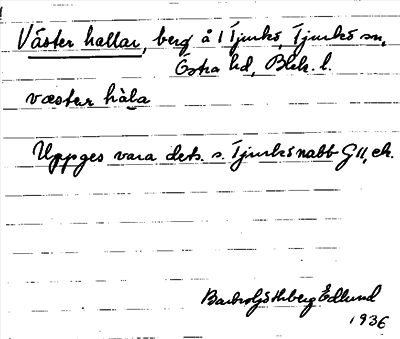 Väster hallar, berg å l Tjurkö, Tjurkö sn,
Östra hd, Blek. l.
væstər hàla
Uppges vara dets. s. Tjurkö nabb G 11, ek.
Edlund
1936